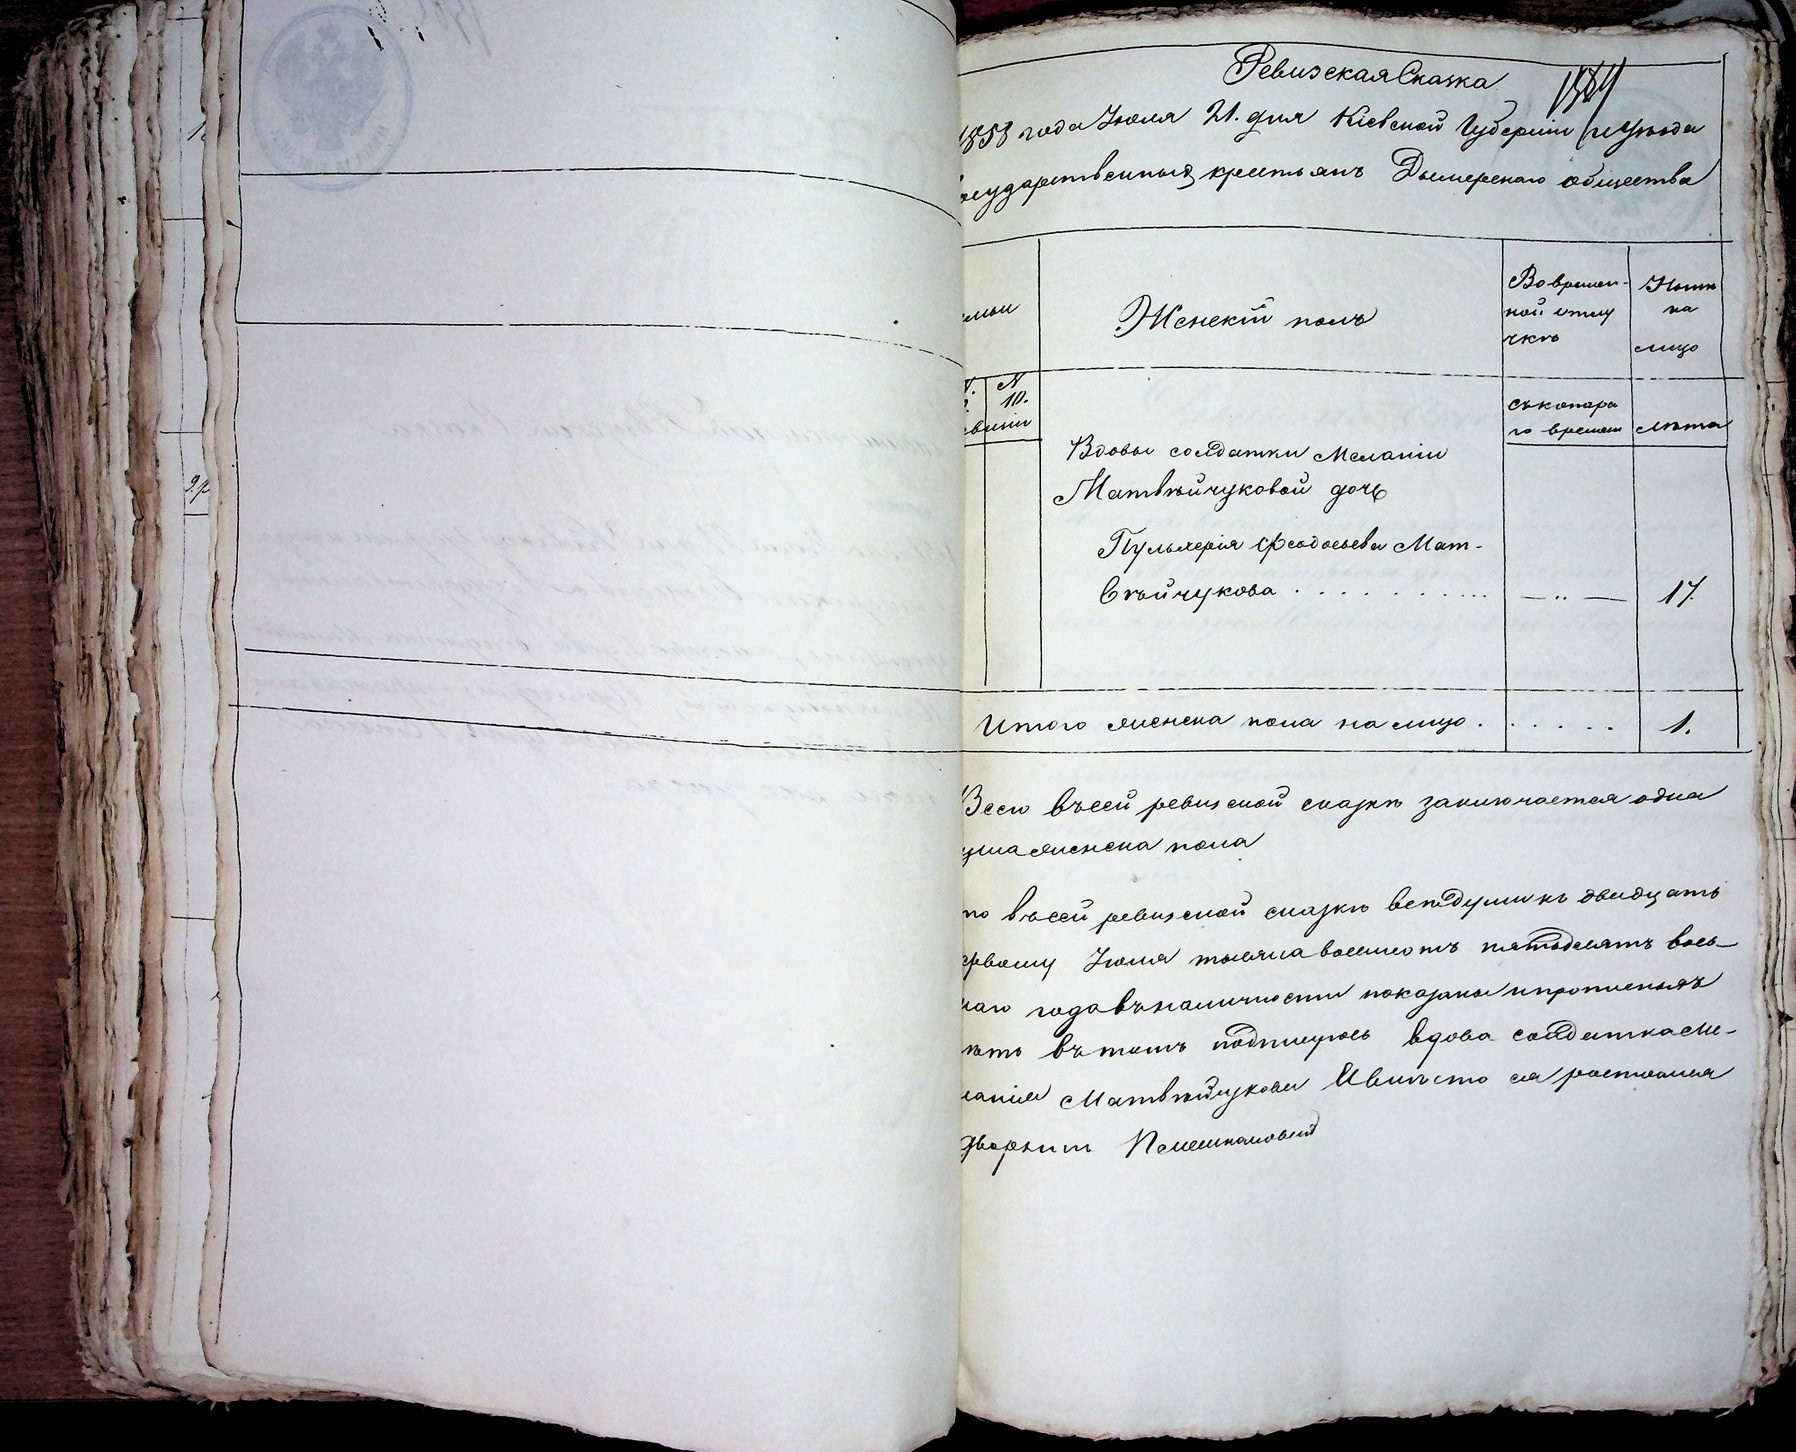 Ревизская Сказка
1858 года Июля 21. дня Кіевской Губерніи и уѣзда
государственныхъ крестьянъ Дымерскаго общества
Женскій полъ
Во времен-
ной отлу
чкѣ
Нынѣ
на
лицо
N
10.
съ котора
го времени
лѣта
Вдовы солдатки Меланіи
Матвѣйчуковой дочь
Пульхерія Феодосьева Мат-
вѣйчукова . . . . . . . . . .
— „ —
17.
Итого женска пола на лицо . . . . . . 1.
Всего въ сей ревизской сказкѣ заключается одна
душа женска пола
въ сей ревизской сказкѣ всѣ души къ двадцать
первому Июля тысяча восемсотъ пятьдесятъ вось-
маго года въ наличности показаны и прописныхъ
нѣтъ въ томъ подпишуюсь вдова солдатка Ме-
ланія Матвѣйчукова А вмѣсто ея росписался